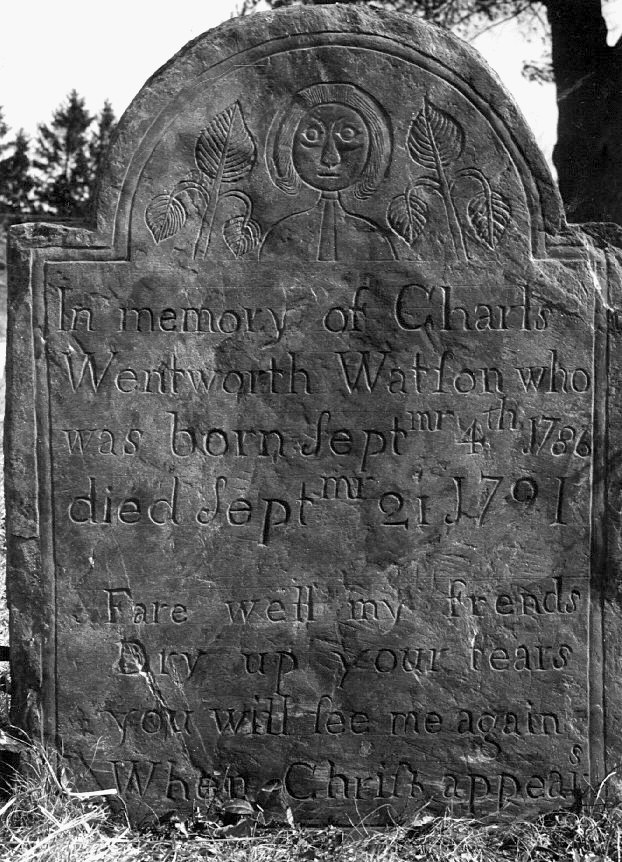 In memory of Charls
Wentworth Watſon who
was born ſeptmr 4.th 1786
died ſeptmr 21 1791
Fare well my frends
Dry up your tears
you will ſee me again
When Chriſt appears